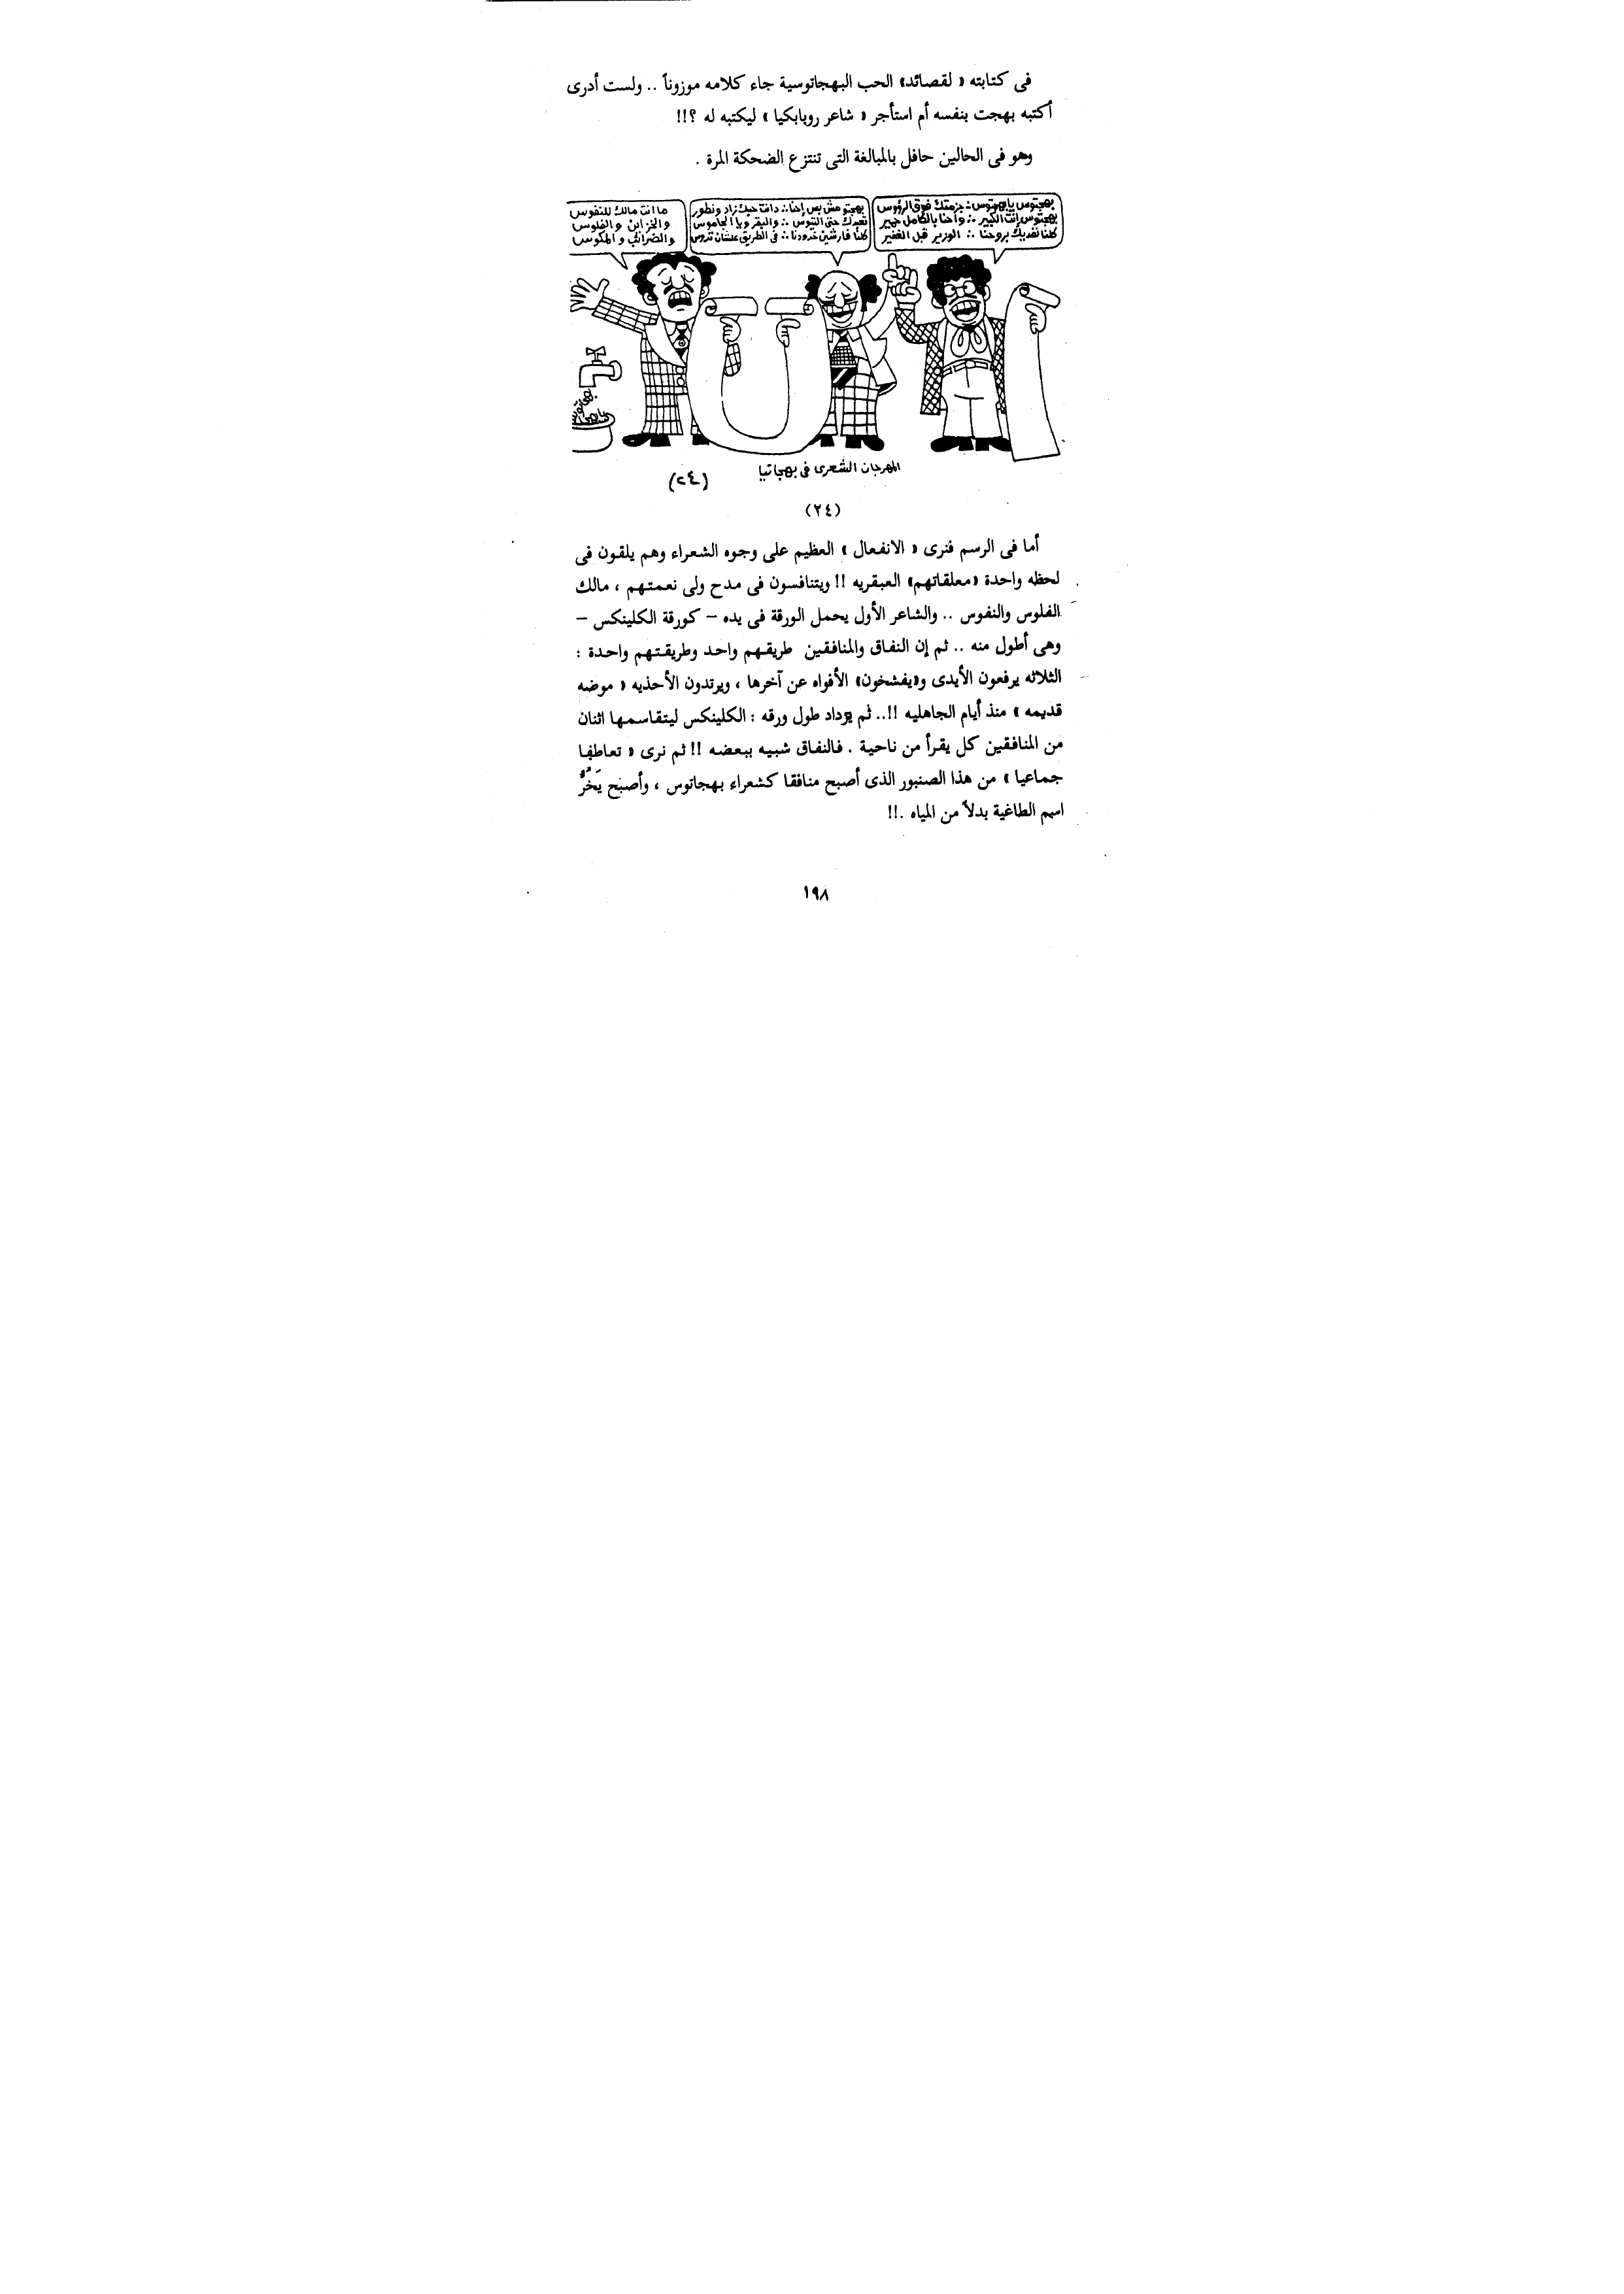 فى كتابته « لقصائد» الحب البهجاتوسية جاء كلامه موزوناً .. ولست أدرى
أكتبه بهجت بنفسه أم استأجر « شاعر روبابكيا » ليكتبه له ؟!!
وهو فى الحالين حافل بالمبالغة التى تنتزع الضحكة المرة .
بهجتوس يابهجتوس ∴ جزمتك فوق الرؤوس
بهجتوس إنت الكبير ∴ واحنا بالكامل حمير
كلنا نفديك بروحنا ∴ الوزير قبل الغفير
بهجتو مش بس إحنا ∴ دانت حبك زاد ونطور
تعبدك حتى التيوس ∴ والبقر ويا الجاموس
كلنا فارشين خدودنا ∴ فى الطريق علشان تدوس
ما انت مالك للنفوس
والخزاين والفلوس
والضرائب والمكوس
بهجاتوس
يابهجا
المهرجان الشعرى فى بهجاتيا
(٢٤)
(٢٤)
أما فى الرسم فنرى « الانفعال » العظيم على وجوه الشعراء وهم يلقون فى
لحظه واحدة «معلقاتهم» العبقريه !! ويتنافسون فى مدح ولى نعمتهم ، مالك
الفلوس والنفوس .. والشاعر الأول يحمل الورقة فى يده – كورقة الكلينكس –
وهى أطول منه .. ثم إن النفاق والمنافقين طريقهم واحد وطريقتهم واحدة :
الثلاثه يرفعون الأيدى و«يفشخون» الأفواه عن آخرها ، ويرتدون الأحذيه « موضه
قديمه » منذ أيام الجاهليه !!.. ثم يزداد طول ورقه : الكلينكس ليتقاسمها اثنان
من المنافقين كل يقرأ من ناحية . فالنفاق شبيه ببعضه !! ثم نرى « تعاطفا
جماعيا » من هذا الصنبور الذى أصبح منافقا كشعراء بهجاتوس ، وأصبح يَخُرُّ
اسم الطاغية بدلاً من المياه .!!
١٩٨